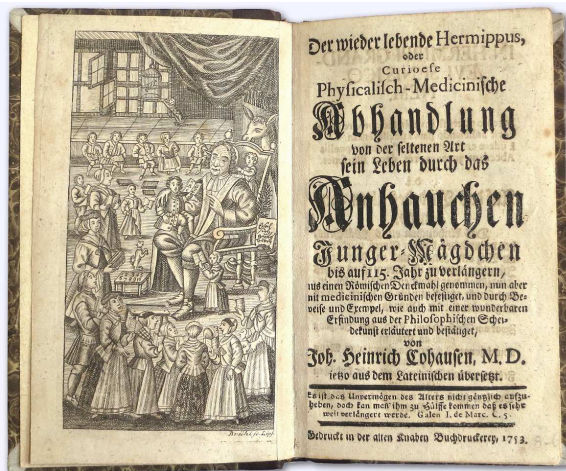 Der wieder lebende Hermippus,
oder
Curioese
Physicalisch-Medicinische
Abhandlung
von der seltenen Art
sein Leben durch das
Anhauchen
Junger-Mägdchen
bis auf 115. Jahr zu verlängern,
aus einen Römischen Denckmahl genommen, nun aber
mit medicinischen Gründen befestiget, und durch Be-
weise und Exempel, wie auch mit einer wunderbaren
Erfindung aus der Philosophischen Schei-
dekunst erläutert und bestätiget,
von
Joh. Heinrich Cohausen, M. D.
ietzo aus dem Lateinischen übersetzt.
Es ist das Unvermögen des Alters nicht gäntzlich aufzu-
heben, doch kan men ihm zu Hülffe kommen daß es sehr
weit verlängert werde. Galen I. de Marc. C. 5.
Gedruckt in der alten Knaben Buchdruckerey, 1753.